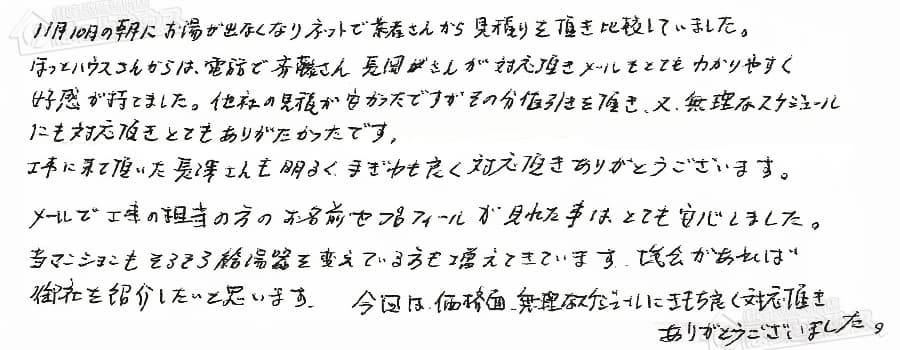 11月10日の朝にお湯が出なくなりネットで業者さんから見積りを頂き比較していました。
ほっとハウスさんからは、電話で斉藤さん 長岡さんが対応頂きメールもとてもわかりやすく
好感が持てました。他社の見積が安かったですがその分値引きを頂き、又、無理なスケジュール
にも対応頂きとてもありがたかったです。
工事に来て頂いた長澤さんも明るく、てぎわも良く対応頂きありがとうございます。
メールで工事の担当の方のお名前やプロフィールが見れた事は、とても安心しました。
当マンションもそろそろ給湯器を変えている方も増えてきています。機会があれば
御社を紹介したいと思います。 今回は、価格面、無理なスケジュールにも気持ち良く対応頂き
ありがとうございました。